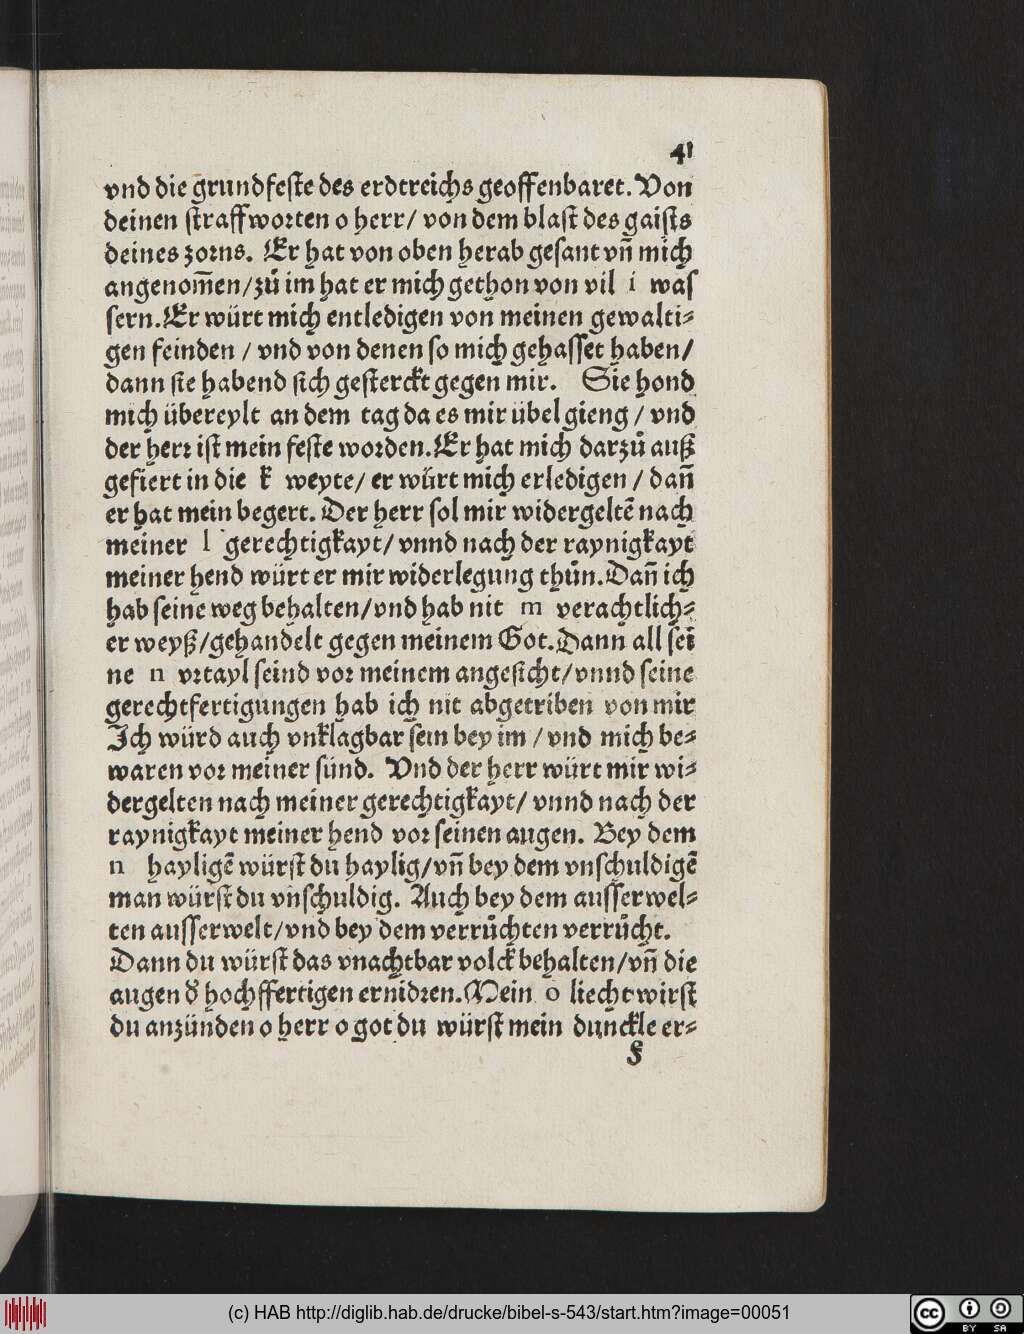 41
vnd die grundfeste des erdtreichs geoffenbaret. Von
deinen straffworten o herr/ von dem blast des gaists
deines zorns. Er hat von oben herab gesant vn̄ mich
angenom̄en/zů im hat er mich gethon von vil i was
sern. Er würt mich entledigen von meinen gewalti⸗
gen feinden / vnd von denen so mich gehasset haben/
dann sie habend sich gesterckt gegen mir. Sie hond
mich übereylt an dem tag da es mir übel gieng / vnd
der herr ist mein feste worden. Er hat mich darzů auß
gefiert in die k weyte/ er würt mich erledigen / dan̄
er hat mein begert. Der herr sol mir widergeltē nach
meiner l gerechtigkayt/ vnnd nach der raynigkayt
meiner hend würt er mir widerlegung thůn. Dan̄ ich
hab seine weg behalten/vnd hab nit m verachtlich⸗
er weyß/gehandelt gegen meinem Got. Dann all sei
ne n vrtayl seind vor meinem angesicht/vnnd seine
gerechtfertigungen hab ich nit abgetriben von mir
Ich würd auch vnklagbar sein bey im / vnd mich be⸗
waren vor meiner sünd. Vnd der herr würt mir wi⸗
dergelten nach meiner gerechtigkayt/ vnnd nach der
raynigkayt meiner hend vor seinen augen. Bey dem
n hayligē würst du haylig/vn̄ bey dem vnschuldigē
man würst du vnschuldig. Auch bey dem ausserwel⸗
ten ausserwelt/vnd bey dem verrůchten verrůcht.
Dann du würst das vnachtbar volck behalten/vn̄ die
augen d̕ hochffertigen ernidren. Mein o liecht wirst
du anzünden o herr o got du würst mein dunckle er⸗
§
(c) HAB http://diglib.hab.de/drucke/bibel-s-543/start.htm?image=00051
cc BY SA